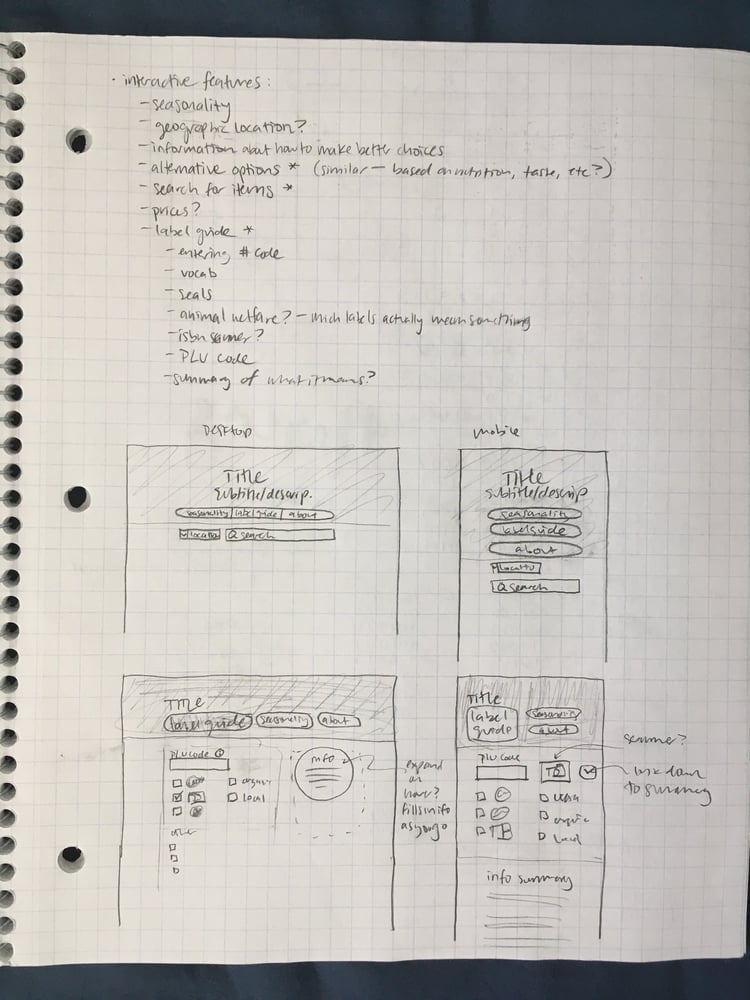 · interactive features:
- seasonality
- geographic location?
- information about how to make better choices
- alternative options * (similar - based on nutrition, taste, etc?)
- search for items *
- prices?
- label guide *
- entering # code
- vocab
- seals
- animal welfare? - which labels actually mean something
- isbn scanner?
- PLU code
- summary of what it means?
DESKTOP
mobile
Title
subtitle/descrip.
seasonality | label guide | about
location
search
Title
subtitle/descrip
seasonality
label guide
about
location
search
Title
label guide
seasonality
about
PLU code
organic
local
other
info
expand
on
hover?
fills in info
as you go
Title
label
guide
seasonality
about
scanner?
PLU code
link down
to summary
USDA
organic
local
info summary